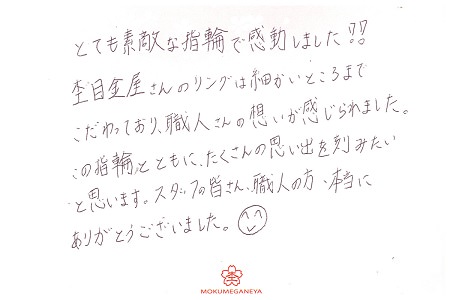 とても素敵な指輪で感動しました!?
杢目金屋さんのリングは細かいところまで
こだわっており、職人さんの想いが感じられました。
この指輪とともに、たくさんの思い出を刻みたい
と思います。スタッフの皆さん、職人の方、本当に
ありがとうございました。
MOKUMEGANEYA